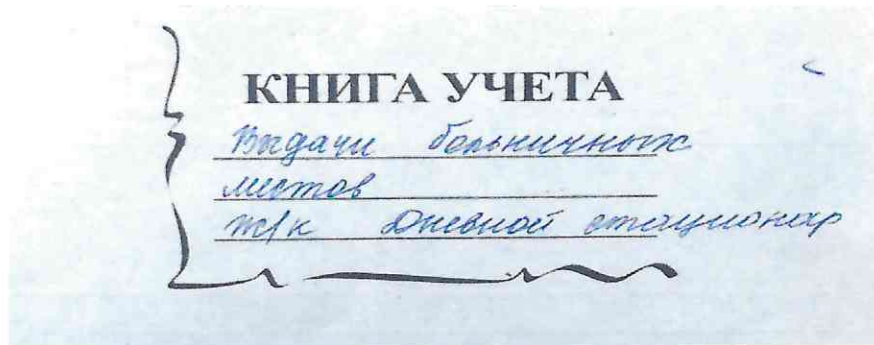 КНИГА УЧЕТА
Выдачи больничных
листов
ж/к Дневной стационар